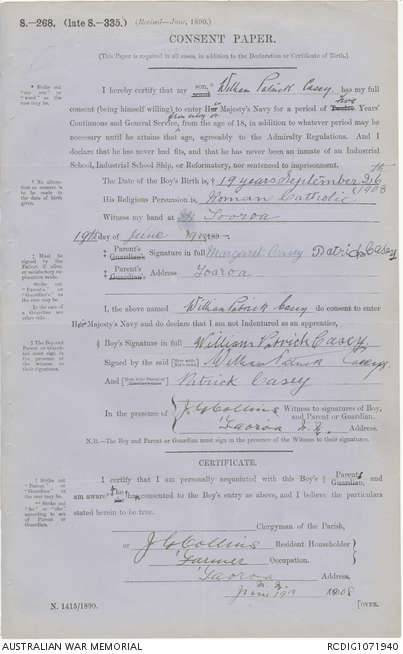 S.—268. (late S.—335.) (Revised—June, 1890.)
CONSENT PAPER.
(This Paper is required in all cases, in addition to the Declaration or Certificate of Birth.)
* Strike out "my son" or "ward" as the case may be.
I hereby certify that my son, * William Patrick Casey has my full
consent (being himself willing) to enter Her Majesty's Navy for a period of Twelve five Years'
Continuous and General Service, from the age of 18, in addition to whatever period may be
necessary until he attains that age, agreeably to the Admiralty Regulations. And I
declare that he has never had fits, and that he has never been an inmate of an Industrial
School, Industrial School Ship, or Reformatory, nor sentenced to imprisonment.
† No alteration or erasure is to be made in the date of birth given.
The Date of the Boy's Birth is, † 19 years September 26th 1908
His Religious Persuasion is, Roman Catholic
Witness my hand at Tooroa
19th day of June
‡ Must be signed by the Father, if alive, or satisfactory explanation made.
‡ Parent's Guardian's Signature in full Margaret Casey Patrick Casey
‡ Parent's Guardian's Address Toaroa
Strike out "Parent's" or "Guardian's" as the case may be.
I, the above named William Patrick Casey do consent to enter
Her Majesty's Navy and do declare that I am not Indentured as an apprentice,
§ The Boy and Parent or Guardian must sign in presence of the witness to their signatures.
§ Boy's Signature in full William Patrick Casey
Signed by the said William Patrick Casey
And Patrick Casey
In the presence of J G Collins Witness to signatures of Boy, and Parent or Guardian.
Taoroa N.Z. Address.
N.B.—The Boy and Parent or Guardian must sign in the presence of the Witness to their signatures.
CERTIFICATE.
‖ Strike out "Parent" or "Guardian" as the case may be.
I certify that I am personally acquainted with this Boy's ‖ Parent Guardian, and
am aware he has consented to the Boy's entry as above, and I believe the particulars
stated herein to be true.
Clergyman of the Parish,
or J G Collins Resident Householder
Farmer Occupation.
Taoroa Address.
June 19th 1908
N. 1415/1890. [OVER.
AUSTRALIAN WAR MEMORIAL RCDIG1071940